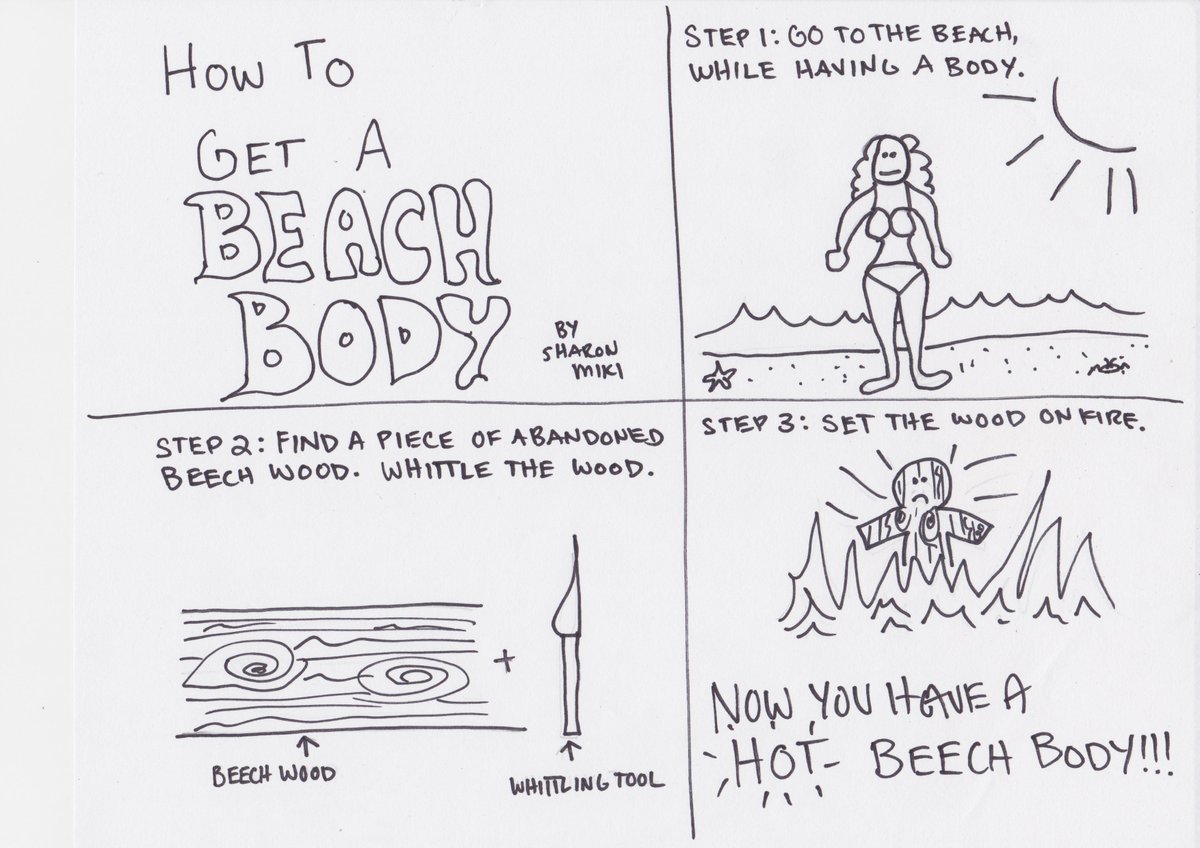 HOW TO
GET A
BEACH
BODY
BY
SHARON
MIKI
STEP 1: GO TO THE BEACH,
WHILE HAVING A BODY.
STEP 2: FIND A PIECE OF ABANDONED
BEECH WOOD. WHITTLE THE WOOD.
+
BEECH WOOD
WHITTLING TOOL
STEP 3: SET THE WOOD ON FIRE.
NOW YOU HAVE A
HOT BEECH BODY!!!